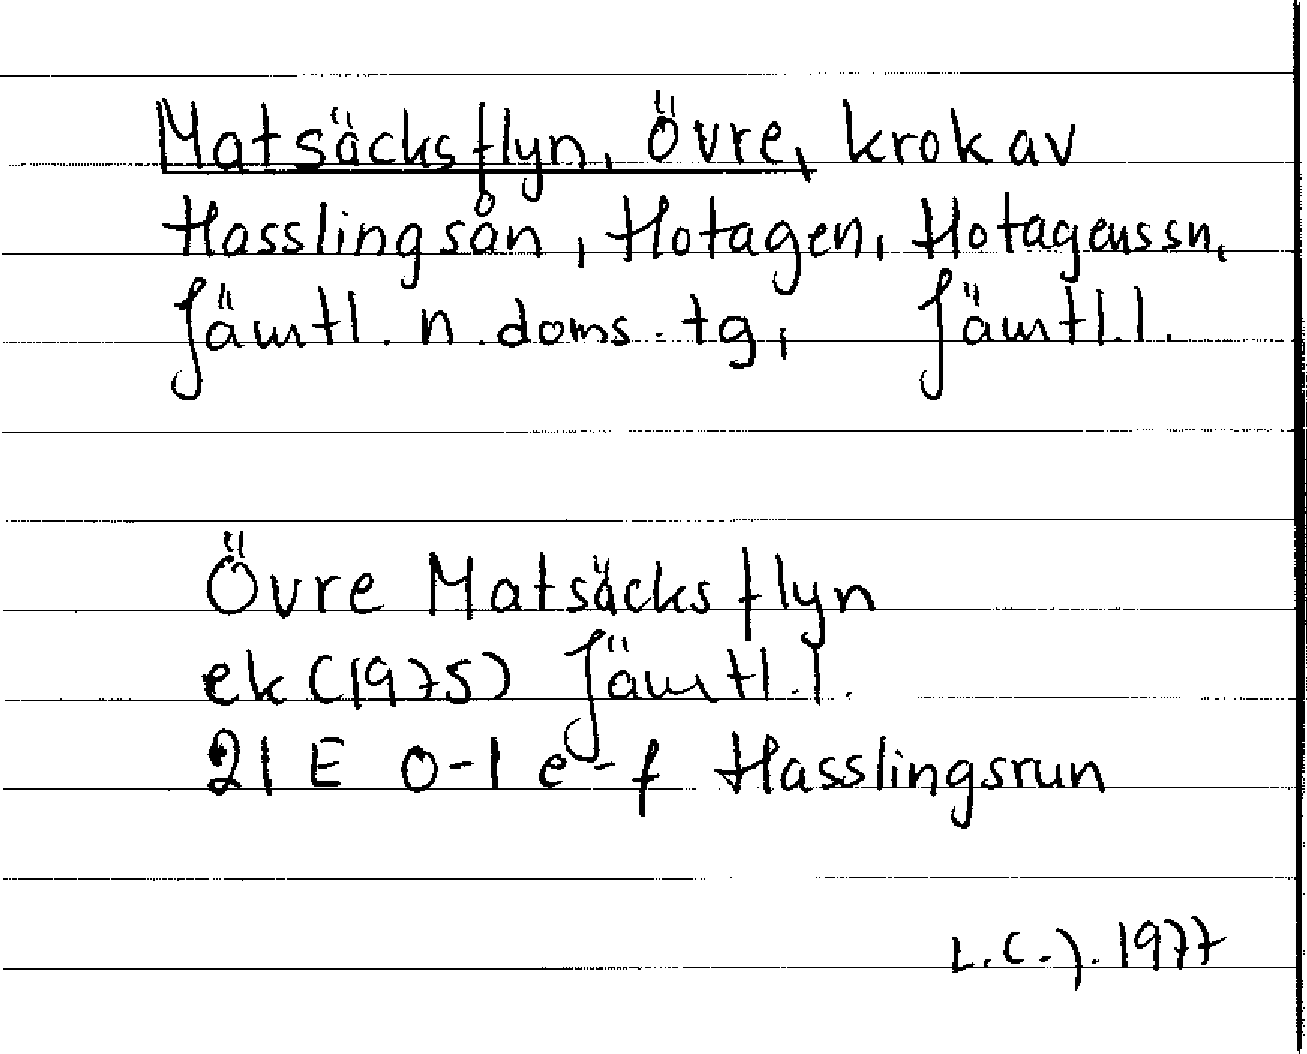 Matsäcksflyn, Övre, krok av
Hasslingsån, Hotagen, Hotagens sn,
Jämtl. n. doms. tg, Jämtl. l.
Övre Matsäcksflyn
ek (1975) Jämtl. l.
21 E 0-1 e-f Hasslingsrun
L.C.J. 1977